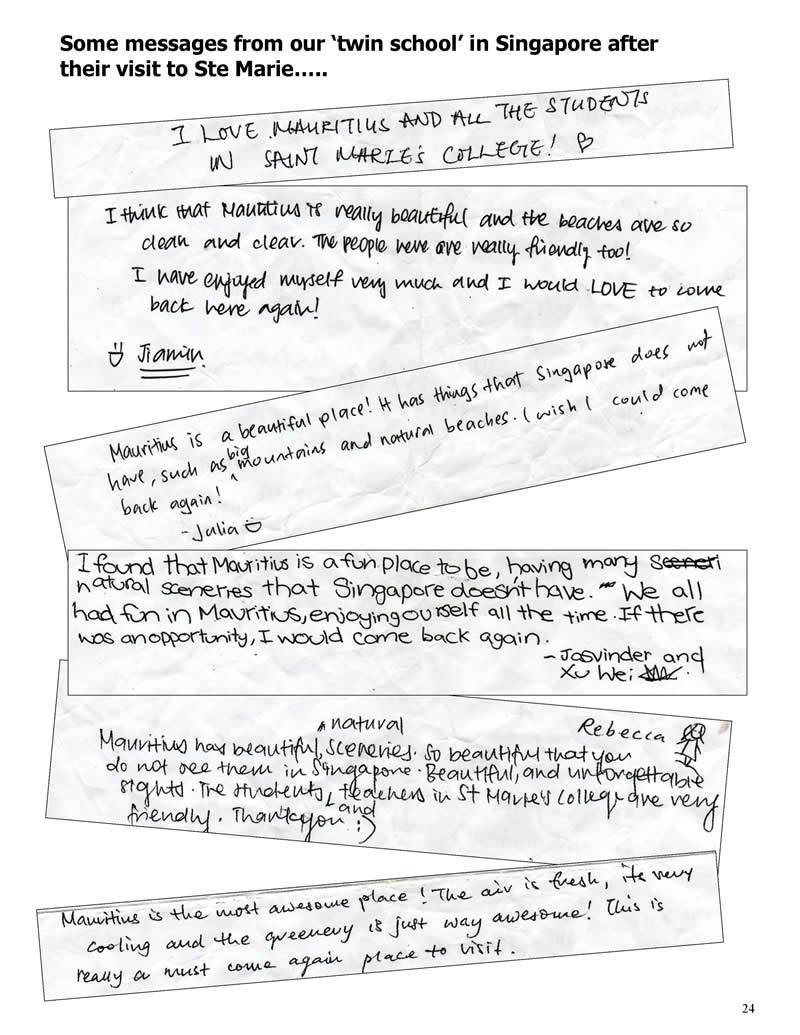 Some messages from our ‘twin school’ in Singapore after
their visit to Ste Marie…..
I LOVE MAURITIUS AND ALL THE STUDENTS
IN SAINT MARIE's COLLEGE! ♡
I think that Mauritius is really beautiful and the beaches are so
clean and clear. The people here are really friendly too!
I have enjoyed myself very much and I would LOVE to come
back here again!
Jiamin
Mauritius is a beautiful place! It has things that Singapore does not
have, such as big mountains and natural beaches. I wish I could come
back again!
- Julia
I found that Mauritius is a fun place to be, having many
natural sceneries that Singapore doesn't have. We all
had fun in Mauritius, enjoying ourself all the time. If there
was an opportunity, I would come back again.
- Jasvinder and
Xu Wei
Rebecca
Mauritius has beautiful, natural sceneries. So beautiful that you
do not see them in Singapore. Beautiful, and unforgettable
sights. The students, and teachers in St Marie's College are very
friendly. Thank you :)
Mauritius is the most awesome place! The air is fresh, its very
cooling and the greenery is just way awesome! This is
really a must come again place to visit.
24